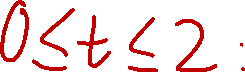 0≤t≤2: